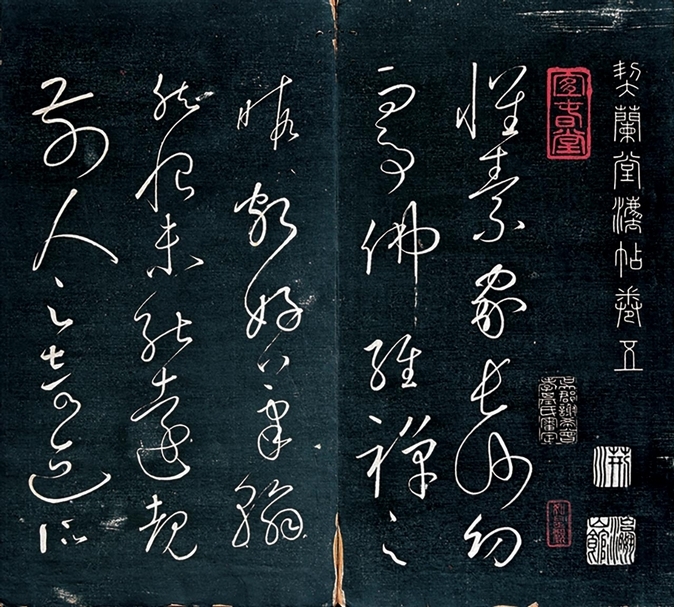 契蘭堂灋帖卷五
懷素家長沙幼
而事佛經禪之
暇頗好筆翰
然恨未能遠覩
前人之奇迹所